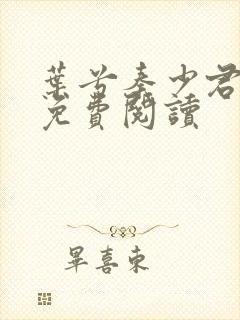 葉兮秦少君
免費閱讀
畢喜東